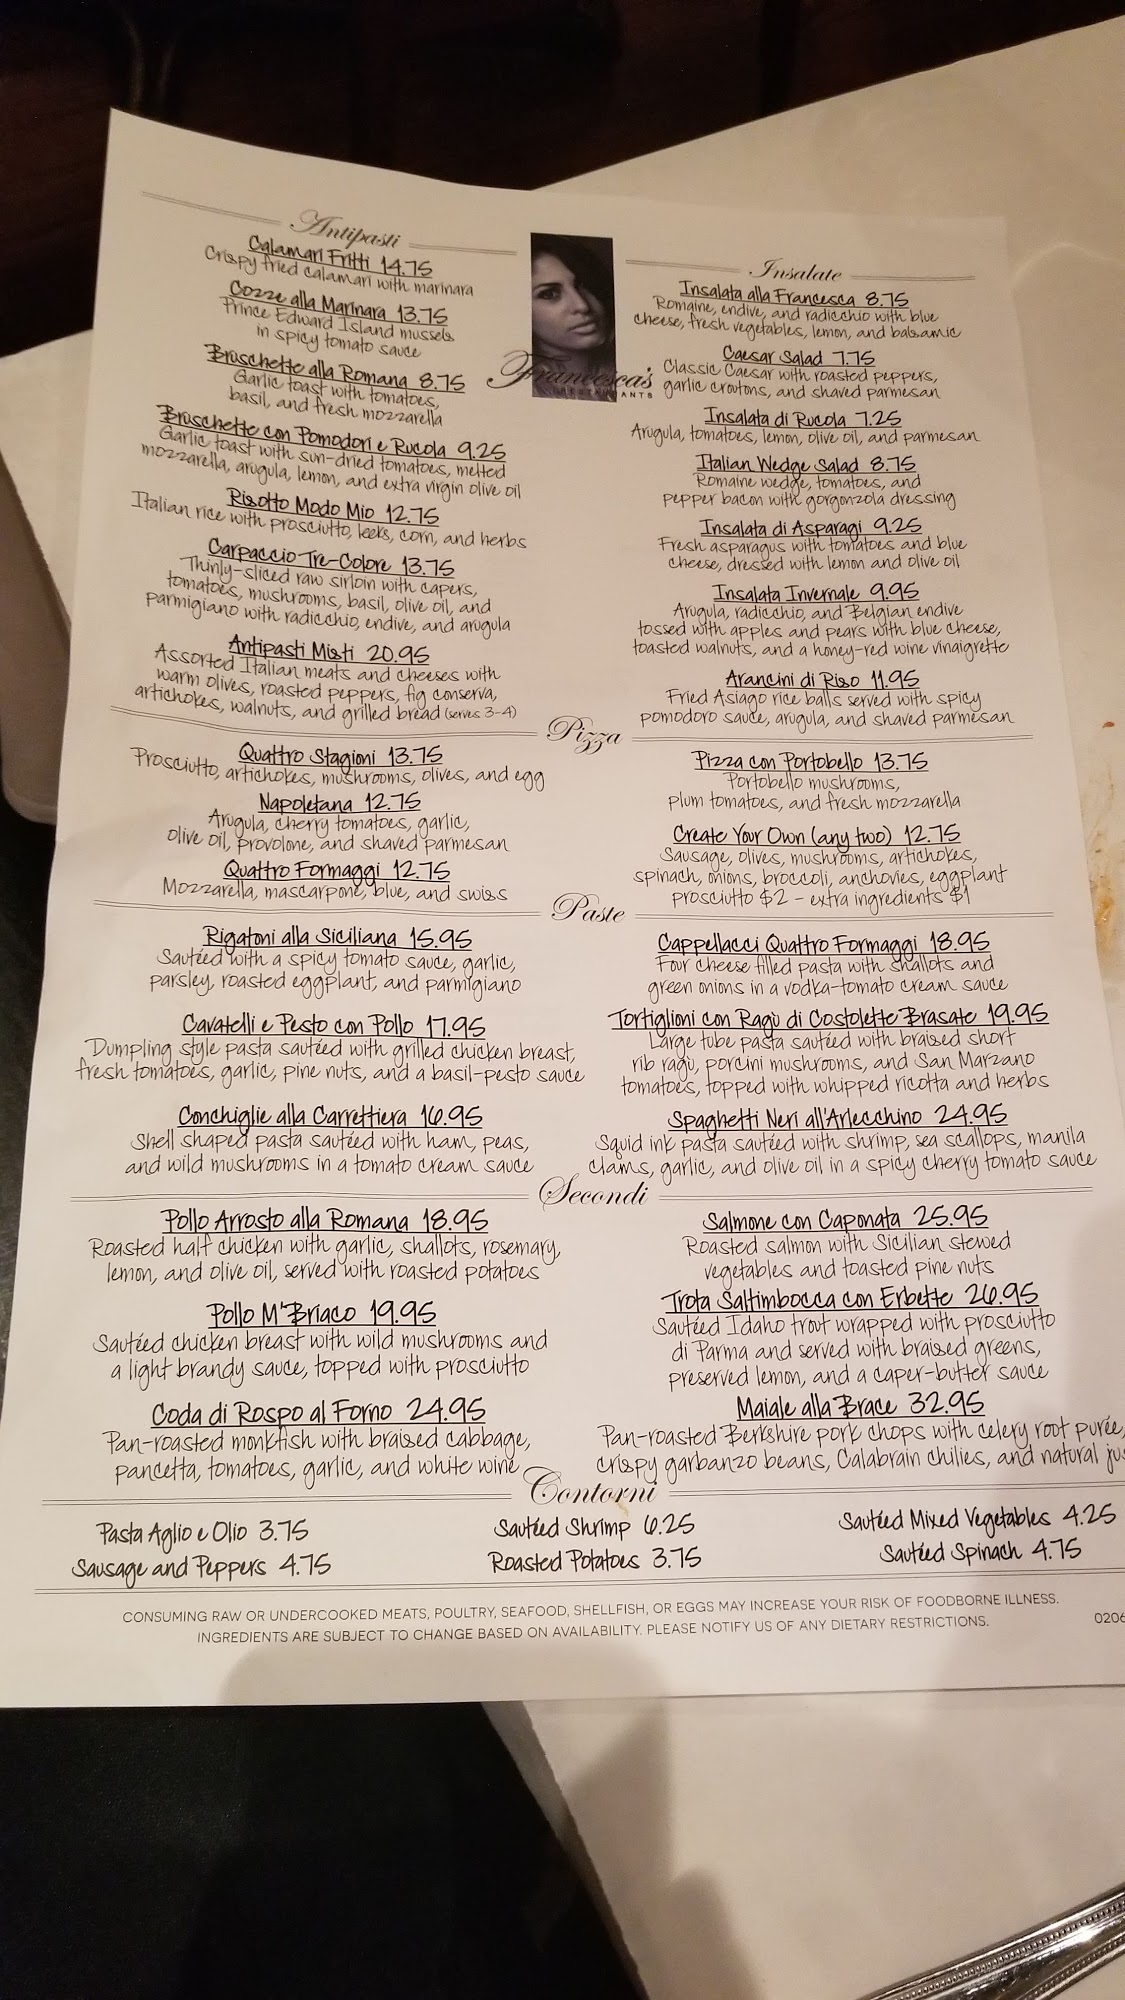 Antipasti
Calamari Fritti 14.75
Crispy fried calamari with marinara
Cozze alla Marinara 13.75
Prince Edward Island mussels
in spicy tomato sauce
Bruschette alla Romana 8.75
Garlic toast with tomatoes,
basil, and fresh mozzarella
Bruschette con Pomodori e Rucola 9.25
Garlic toast with sun-dried tomatoes, melted
mozzarella, arugula, lemon, and extra virgin olive oil
Risotto Modo Mio 12.75
Italian rice with prosciutto, leeks, corn, and herbs
Carpaccio Tre-Colore 13.75
Thinly-sliced raw sirloin with capers,
tomatoes, mushrooms, basil, olive oil, and
parmigiano with radicchio, endive, and arugula
Antipasti Misti 20.95
Assorted Italian meats and cheeses with
warm olives, roasted peppers, fig conserva,
artichokes, walnuts, and grilled bread (serves 3-4)
Francesca's
RESTAURANTS
Insalate
Insalata alla Francesca 8.75
Romaine, endive, and radicchio with blue
cheese, fresh vegetables, lemon, and balsamic
Caesar Salad 7.75
Classic Caesar with roasted peppers,
garlic croutons, and shaved parmesan
Insalata di Rucola 7.25
Arugula, tomatoes, lemon, olive oil, and parmesan
Italian Wedge Salad 8.75
Romaine wedge, tomatoes, and
pepper bacon with gorgonzola dressing
Insalata di Asparagi 9.25
Fresh asparagus with tomatoes and blue
cheese, dressed with lemon and olive oil
Insalata Invernale 9.95
Arugula, radicchio, and Belgian endive
tossed with apples and pears with blue cheese,
toasted walnuts, and a honey-red wine vinaigrette
Arancini di Riso 11.95
Fried Asiago rice balls served with spicy
pomodoro sauce, arugula, and shaved parmesan
Pizza
Quattro Stagioni 13.75
Prosciutto, artichokes, mushrooms, olives, and egg
Napoletana 12.75
Arugula, cherry tomatoes, garlic,
olive oil, provolone, and shaved parmesan
Quattro Formaggi 12.75
Mozzarella, mascarpone, blue, and swiss
Pizza con Portobello 13.75
Portobello mushrooms,
plum tomatoes, and fresh mozzarella
Create Your Own (any two) 12.75
Sausage, olives, mushrooms, artichokes,
spinach, onions, broccoli, anchovies, eggplant
prosciutto $2 - extra ingredients $1
Paste
Rigatoni alla Siciliana 15.95
Sautéed with a spicy tomato sauce, garlic,
parsley, roasted eggplant, and parmigiano
Cavatelli e Pesto con Pollo 17.95
Dumpling style pasta sautéed with grilled chicken breast,
fresh tomatoes, garlic, pine nuts, and a basil-pesto sauce
Conchiglie alla Carrettiera 16.95
Shell shaped pasta sautéed with ham, peas,
and wild mushrooms in a tomato cream sauce
Cappellacci Quattro Formaggi 18.95
Four cheese filled pasta with shallots and
green onions in a vodka-tomato cream sauce
Tortiglioni con Ragù di Costolette Brasate 19.95
Large tube pasta sautéed with braised short
rib ragù, porcini mushrooms, and San Marzano
tomatoes, topped with whipped ricotta and herbs
Spaghetti Neri all'Arlecchino 24.95
Squid ink pasta sautéed with shrimp, sea scallops, manila
clams, garlic, and olive oil in a spicy cherry tomato sauce
Secondi
Pollo Arrosto alla Romana 18.95
Roasted half chicken with garlic, shallots, rosemary,
lemon, and olive oil, served with roasted potatoes
Pollo M'Briaco 19.95
Sautéed chicken breast with wild mushrooms and
a light brandy sauce, topped with prosciutto
Coda di Rospo al Forno 24.95
Pan-roasted monkfish with braised cabbage,
pancetta, tomatoes, garlic, and white wine
Salmone con Caponata 25.95
Roasted salmon with Sicilian stewed
vegetables and toasted pine nuts
Trota Saltimbocca con Erbette 26.95
Sautéed Idaho trout wrapped with prosciutto
di Parma and served with braised greens,
preserved lemon, and a caper-butter sauce
Maiale alla Brace 32.95
Pan-roasted Berkshire pork chops with celery root purée,
crispy garbanzo beans, Calabrain chilies, and natural jus
Contorni
Pasta Aglio e Olio 3.75
Sausage and Peppers 4.75
Sautéed Shrimp 6.25
Roasted Potatoes 3.75
Sautéed Mixed Vegetables 4.25
Sautéed Spinach 4.75
CONSUMING RAW OR UNDERCOOKED MEATS, POULTRY, SEAFOOD, SHELLFISH, OR EGGS MAY INCREASE YOUR RISK OF FOODBORNE ILLNESS.
INGREDIENTS ARE SUBJECT TO CHANGE BASED ON AVAILABILITY. PLEASE NOTIFY US OF ANY DIETARY RESTRICTIONS.
0206